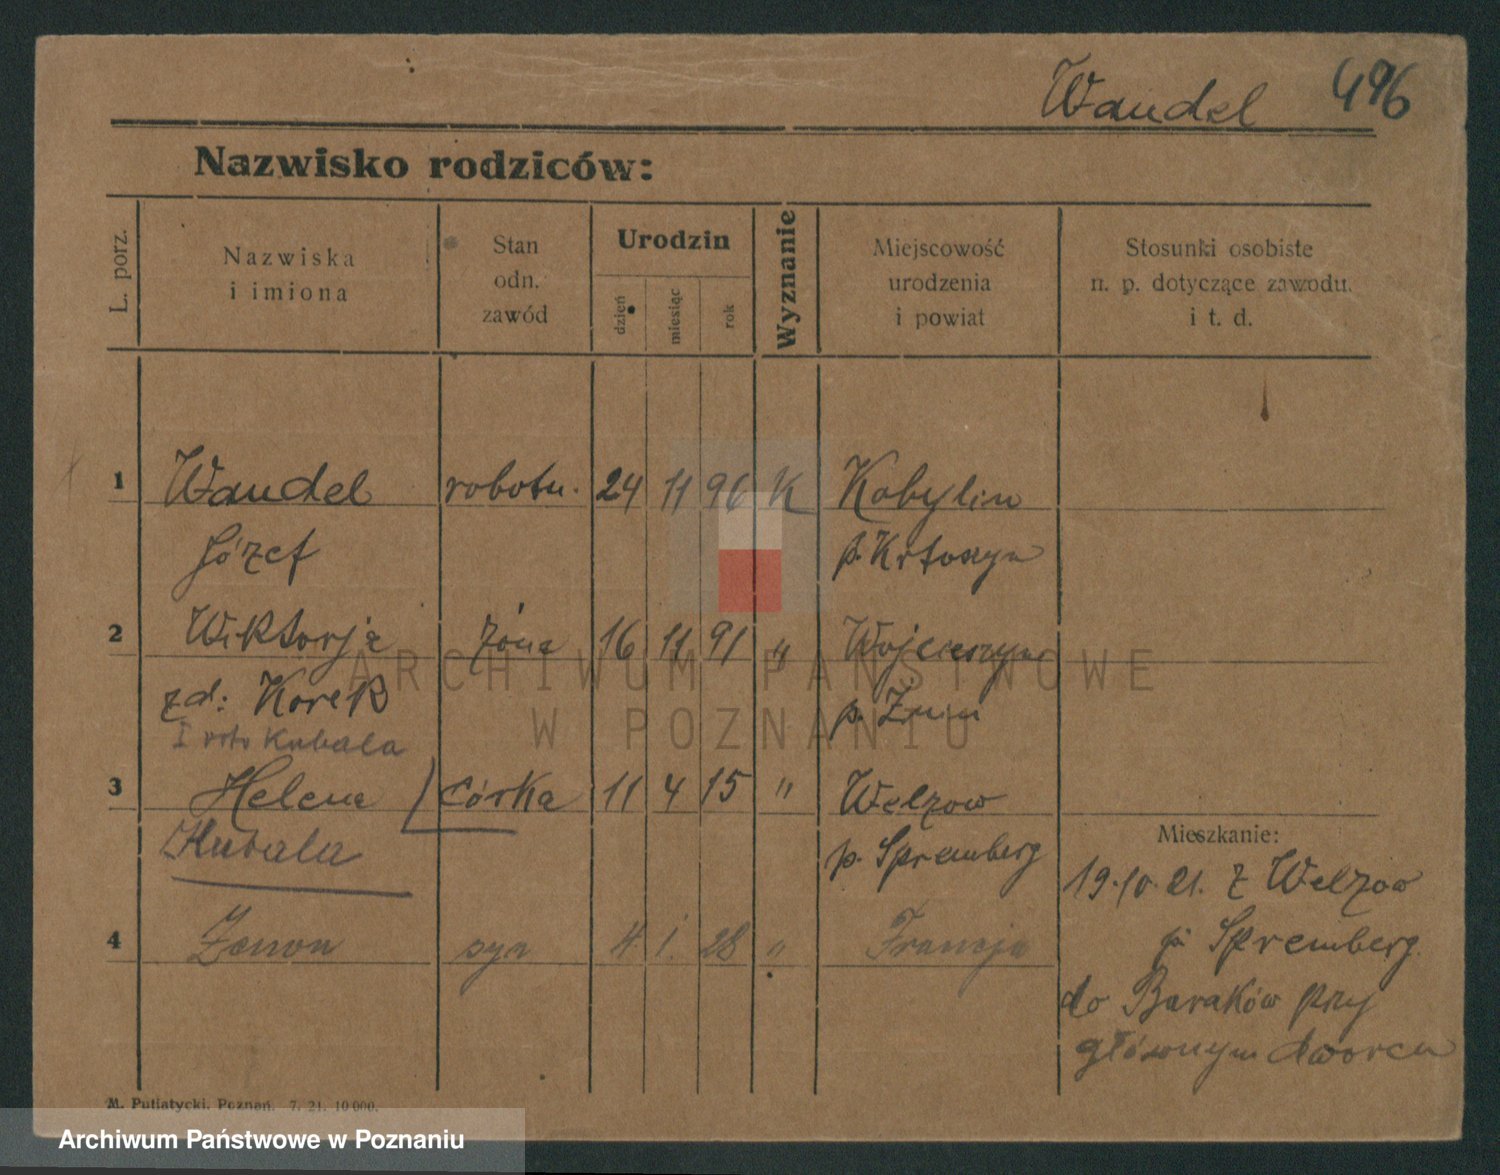 Wandel 496
Nazwisko rodziców:
L. porz.
Nazwiska
i imiona
Stan
odn.
zawód
Urodzin
dzień
miesiąc
rok
Wyznanie
Miejscowość
urodzenia
i powiat
Stosunki osobiste
n. p. dotyczące zawodu.
i t. d.
1 Wandel robotn. 24 11 96 K Kobylin
Józef p. Krtoszyn
2 Wiktorja żona 16 11 91 " Wojcieszyn
zd: Korek p. Żnin
I voto Kubala
3 Helena córka 11 4 15 " Welzow
Kubala p. Spremberg
4 Zenon syn 4 1. 28 " Francja
Mieszkanie:
19.10.21. z Welzow
p. Spremberg.
do Baraków przy
głównym dworcu
M. Putiatycki, Poznań. 7. 21. 10 000.
ARCHIWUM PAŃSTWOWE
W POZNANIU
Archiwum Państwowe w Poznaniu